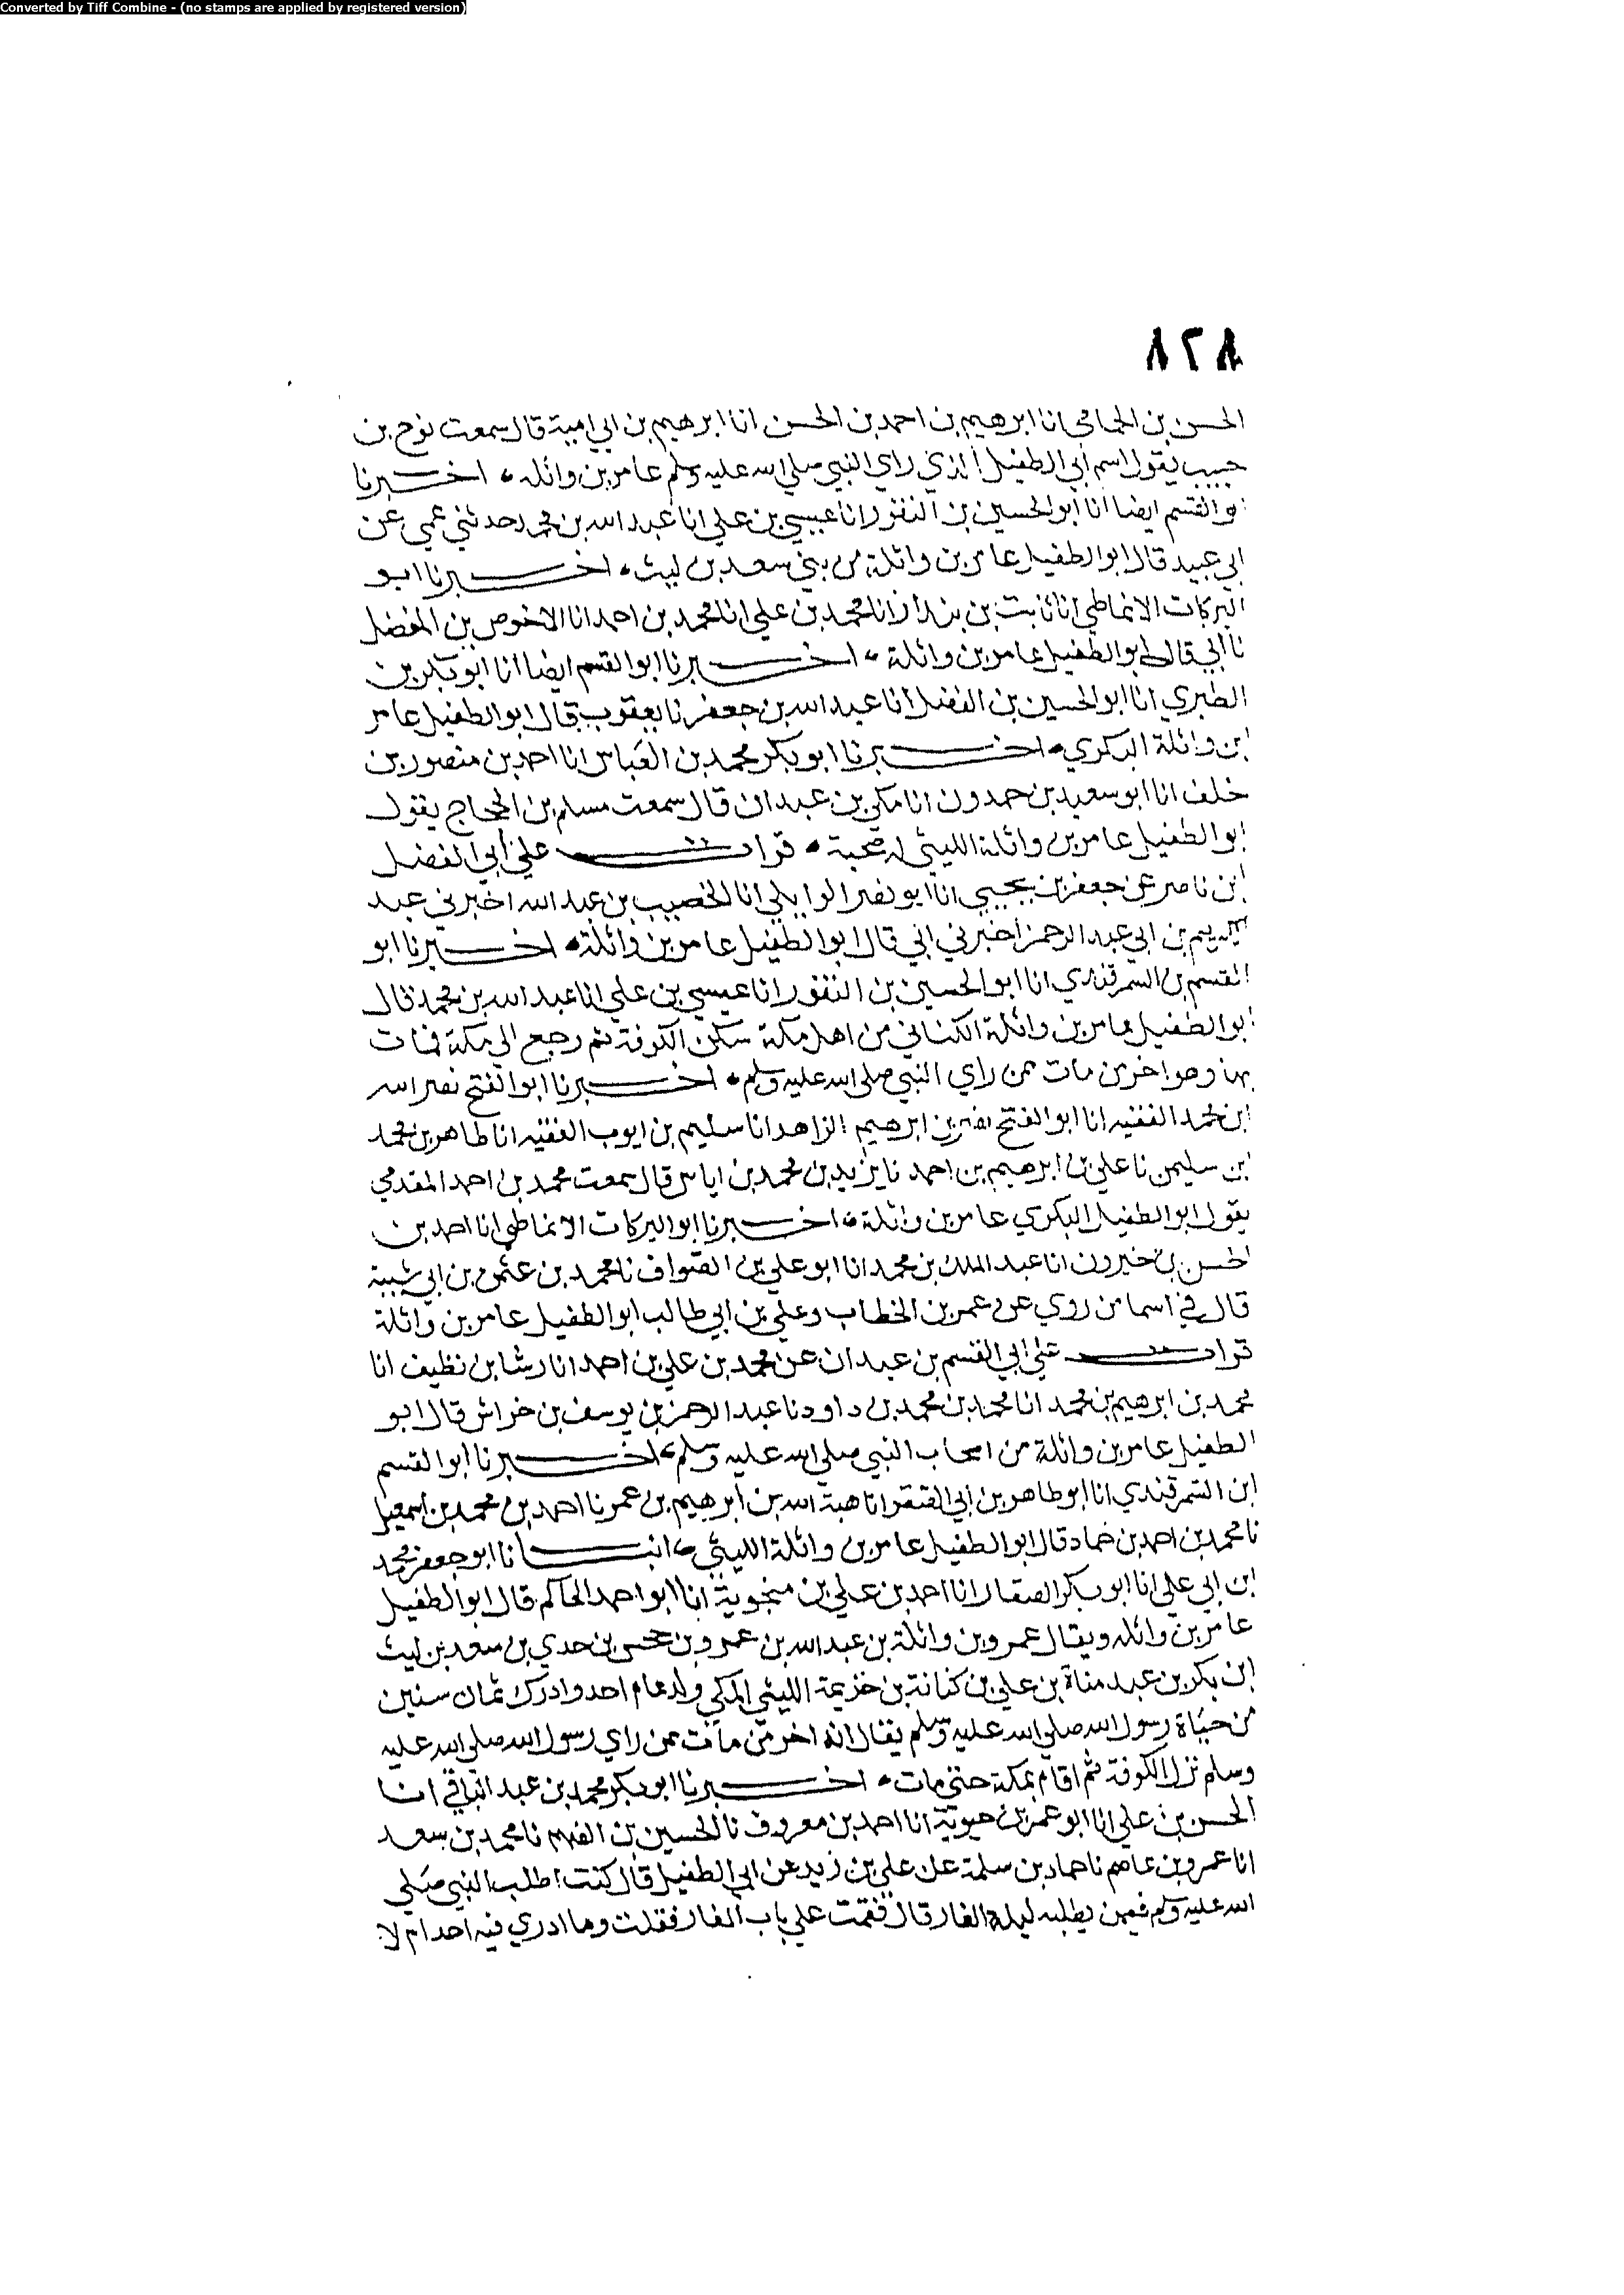 Converted by Tiff Combine - (no stamps are applied by registered version)
٨٢٨
الحسن بن الحمامي انا ابرهيم بن احمد بن الحسن انا ابرهيم بن ابي امية قال سمعت نوح بن
حبيب يقول اسم ابي الطفيل الذي راي النبي صلى الله عليه وسلم عامر بن واثله، اخبرنا
ابو القسم ايضا انا ابو الحسين بن النقور انا عيسي بن علي انا عبد الله بن محمد حدثني عمي عن
ابي عبيد قال ابو الطفيل عامر بن واثلة من بني سعد بن ليث، اخبرنا ابو
البركات الانماطي انا ثابت بن بندار انا محمد بن علي انا محمد بن احمد انا الاخوص بن المفضل
نا ابي قال ابو الطفيل عامر بن واثلة، اخبرنا ابو القسم ايضا انا ابو بكر بن
الطبري انا ابو الحسين بن الفضل انا عبد الله بن جعفر نا يعقوب قال ابو الطفيل عامر
ابن واثلة البكري، اخبرنا ابو بكر محمد بن العباس انا احمد بن منصور بن
خلف انا ابو سعيد بن حمدون انا مكي بن عبدان قال سمعت مسلم بن الحجاج يقول
ابو الطفيل عامر بن واثلة الليثي له صحبة، قرات علي ابي الفضل
ابن ناصر عن جعفر بن يحيي انا ابو نصر الوايلي انا الخصيب بن عبد الله اخبرني عبد
الكريم بن ابي عبد الرحمن اخبرني ابي قال ابو الطفيل عامر بن واثلة، اخبرنا ابو
القسم بن السمرقندي انا ابو الحسين بن النقور انا عيسي بن علي انا عبد الله بن محمد قال
ابو الطفيل عامر بن واثلة الكناني من اهل مكة سكن الكوفة ثم رجع الي مكة فمات
بها وهو اخر من مات ممن راي النبي صلى الله عليه وسلم، اخبرنا ابو الفتح نصر الله
ابن محمد الفقيه انا ابو الفتح نصر بن ابرهيم الزاهد انا سليم بن ايوب الفقيه انا طاهر بن محمد
ابن سليمن نا علي بن ابرهيم بن احمد نا يزيد بن محمد بن اياس قال سمعت محمد بن احمد المقدمي
يقول ابو الطفيل البكري عامر بن واثلة، اخبرنا ابو البركات الانماطي انا احمد بن
الحسن بن خيرون انا عبد الملك بن محمد انا ابو علي بن الصواف نا محمد بن عثمن بن ابي شيبة
قال في اسما من روي عن عمر بن الخطاب وعلي بن ابي طالب ابو الطفيل عامر بن واثلة
قرات علي ابي القسم بن عبدان عن محمد بن علي بن احمد انا رشا بن نظيف انا
محمد بن ابرهيم بن محمد انا محمد بن محمد بن داود نا عبد الرحمن بن يوسف بن خراش قال ابو
الطفيل عامر بن واثلة من اصحاب النبي صلى الله عليه وسلم، اخبرنا ابو القسم
ابن السمرقندي انا ابو طاهر بن ابي الصقر انا هبة الله بن ابرهيم بن عمر نا احمد بن محمد بن اسمعيل
نا محمد بن احمد بن حماد قال ابو الطفيل عامر بن واثلة الليثي، انبانا ابو جعفر محمد
ابن ابي علي انا ابو بكر الصفار انا احمد بن علي بن منجوية انا ابو احمد الحاكم قال ابو الطفيل
عامر بن واثله ويقال عمرو بن واثلة بن عبد الله بن عمرو بن جحش بن حدي بن سعد بن ليث
ابن بكر بن عبد مناة بن علي بن كنانة بن خزيمة الليثي المكي ولد عام احد وادرك ثمان سنين
من حياة رسول الله صلى الله عليه وسلم يقال انه اخر من مات ممن راي رسول الله صلى الله عليه
وسلم نزل الكوفة ثم اقام بمكة حتي مات، اخبرنا ابو بكر محمد بن عبد الباقي انا
الحسن بن علي انا ابو عمر بن حيوية انا احمد بن معروف نا الحسين بن الفهم نا محمد بن سعد
انا عمرو بن عاصم نا حماد بن سلمة عن علي بن زيد عن ابي الطفيل قال كنت اطلب النبي صلي
الله عليه وسلم فيمن يطلبه ليلة الغار قال فقمت علي باب الغار فقلت وما ادري فيه احد ام لا